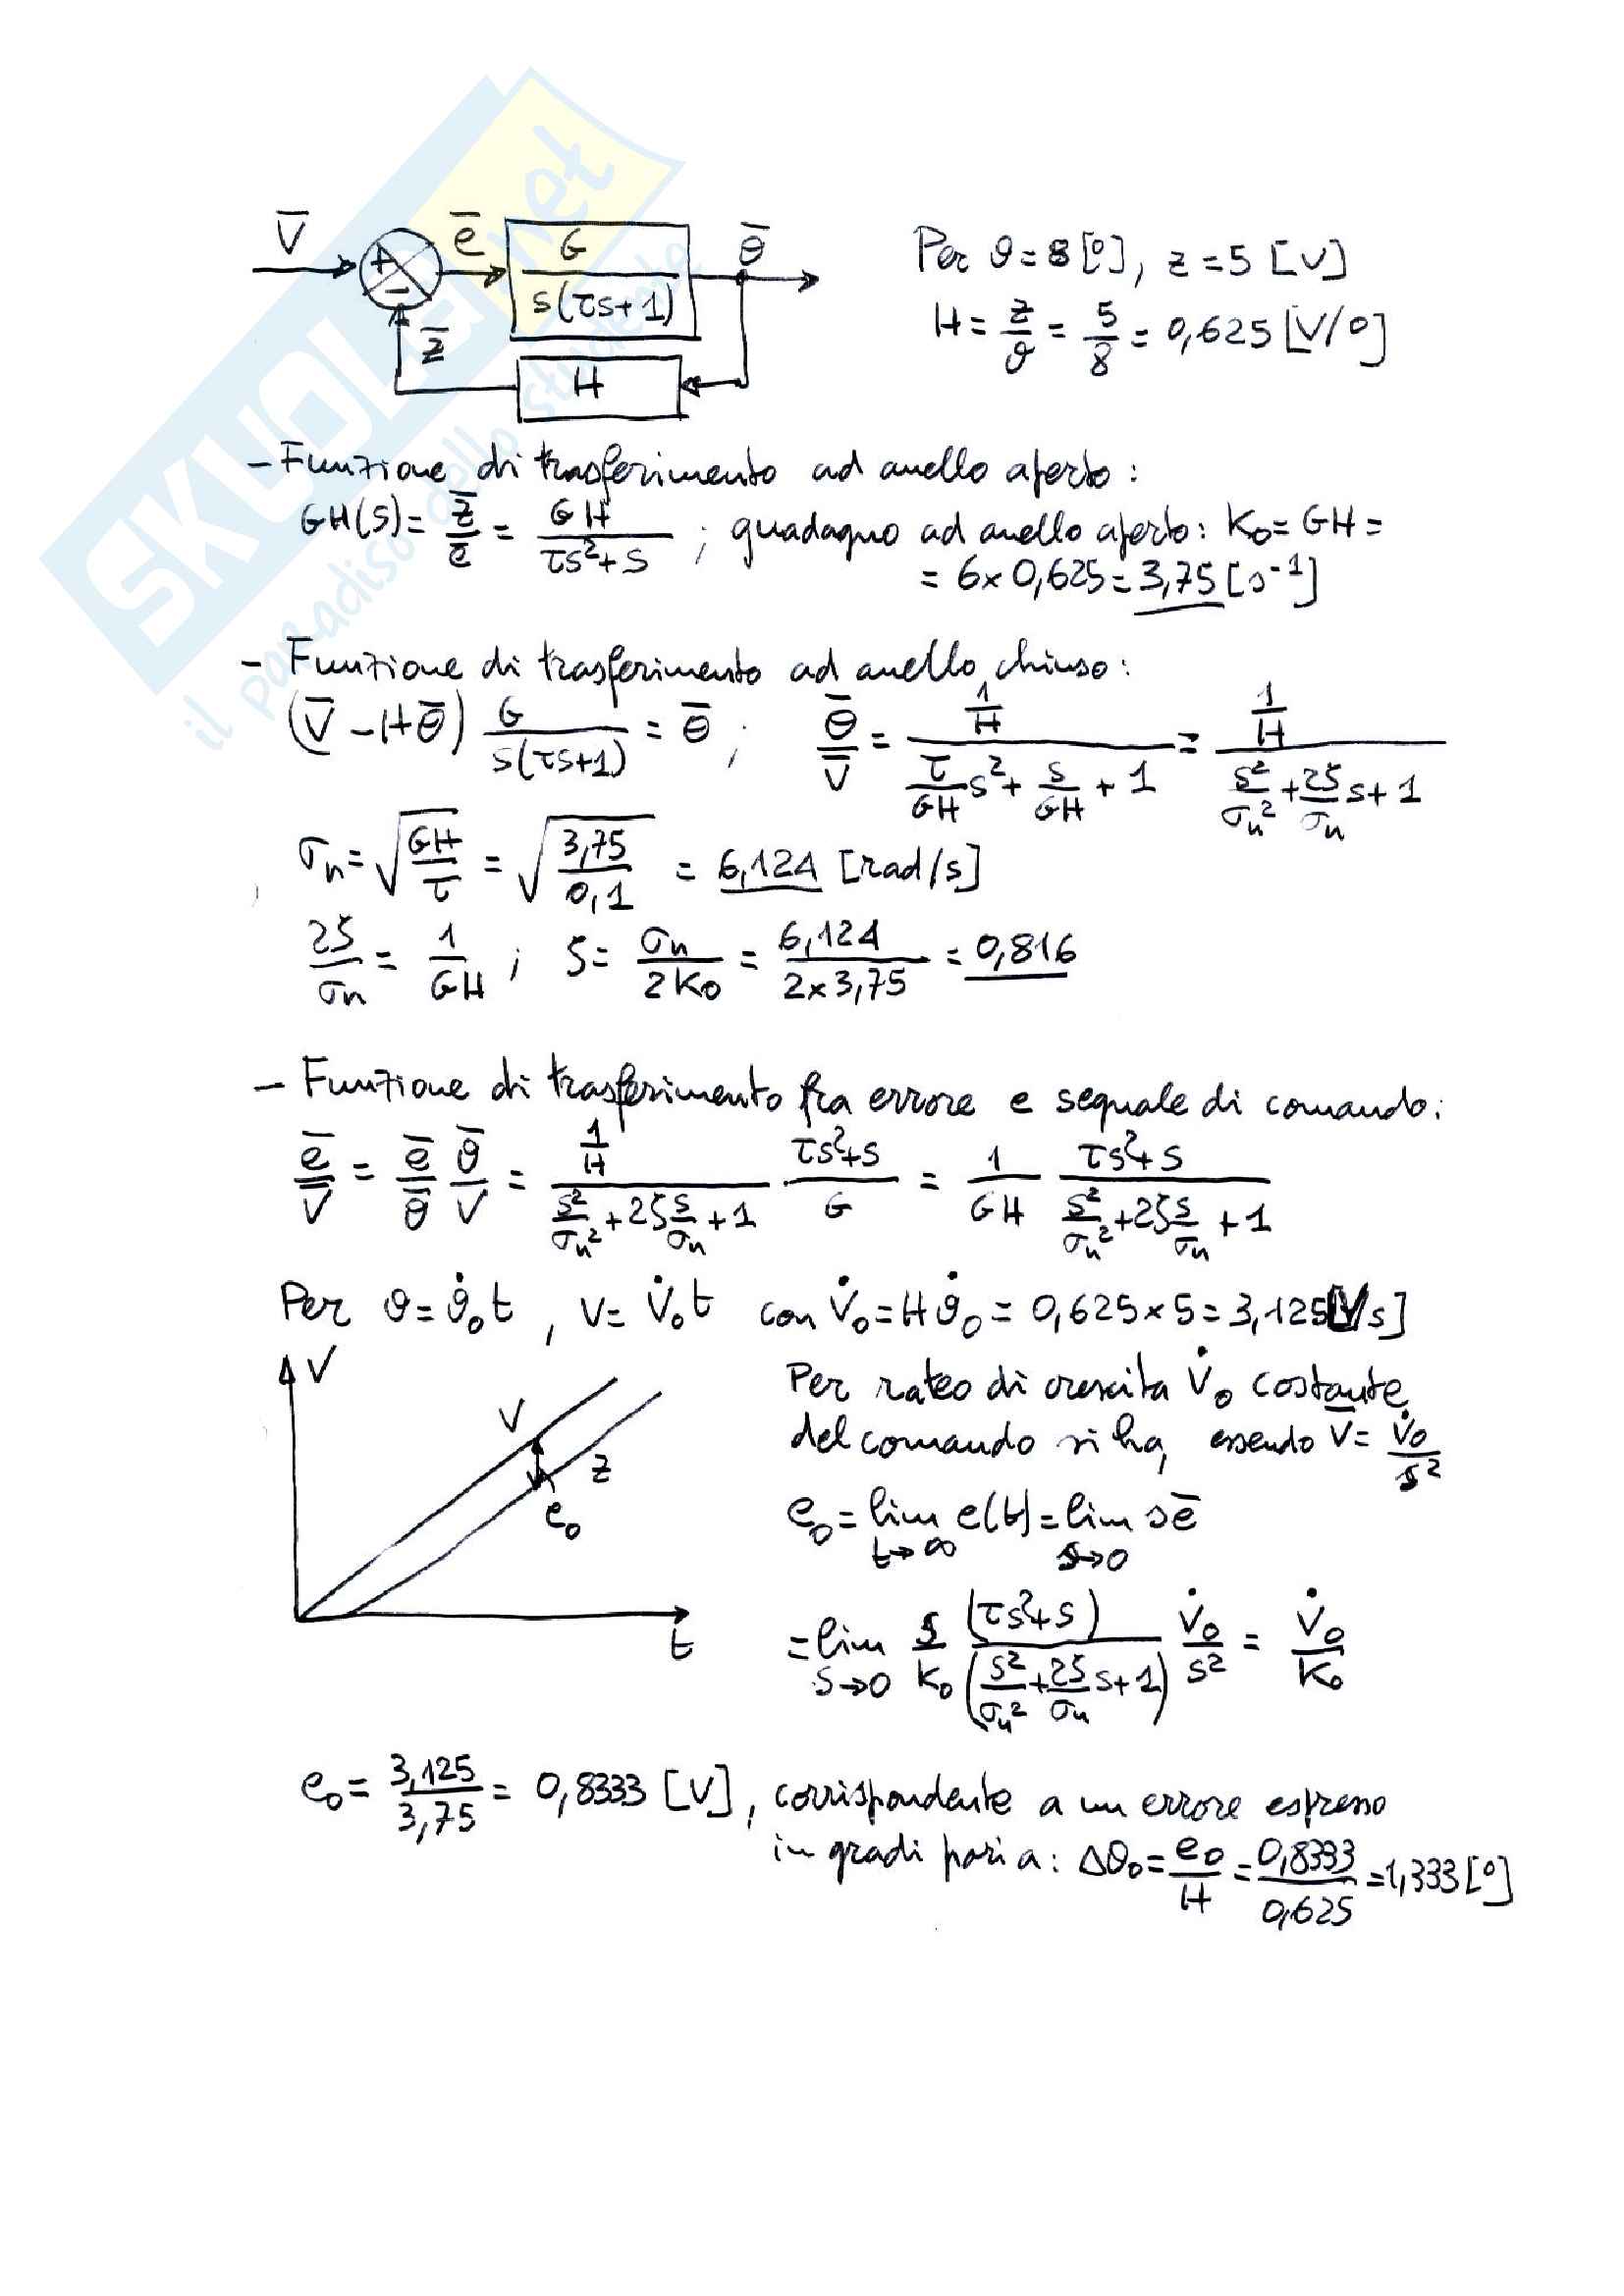 SKUOLA.net
il paradiso dello studente
V̅ + - e̅ G/(s(τs+1)) θ̅
z̅ H
Per ϑ=8[°], z=5 [V]
H = z/ϑ = 5/8 = 0,625 [V/°]
- Funzione di trasferimento ad anello aperto:
GH(s) = z̅/e̅ = GH/(τs²+s) ; guadagno ad anello aperto: K₀ = GH =
= 6×0,625 = 3,75 [s⁻¹]
- Funzione di trasferimento ad anello chiuso:
(V̅ - Hθ̅) G/(s(τs+1)) = θ̅ ; θ̅/V̅ = (1/H)/(τ/GH s² + s/GH + 1) = (1/H)/(s²/σₙ² + 2ζ/σₙ s + 1)
σₙ = √(GH/τ) = √(3,75/0,1) = 6,124 [rad/s]
2ζ/σₙ = 1/GH ; ζ = σₙ/2K₀ = 6,124/(2×3,75) = 0,816
- Funzione di trasferimento fra errore e segnale di comando:
e̅/V̅ = e̅/ϑ̅ ϑ̅/V = (1/H)/(s²/σₙ² + 2ζ s/σₙ + 1) (τs²+s)/G = 1/GH (τs²+s)/(s²/σₙ² + 2ζ s/σₙ + 1)
Per ϑ = ϑ̇₀t , V = V̇₀t con V̇₀ = Hϑ̇₀ = 0,625×5 = 3,125 [V/s]
V
V
z
e₀
t
Per rateo di crescita V̇₀ costante
del comando si ha, essendo V̅ = V̇₀/s²
e₀ = lim t→∞ e(t) = lim s→0 s e̅
= lim s→0 s/K₀ (τs²+s)/(s²/σₙ² + 2ζ/σₙ s + 1) V̇₀/s² = V̇₀/K₀
e₀ = 3,125/3,75 = 0,8333 [V], corrispondente a un errore espresso
in gradi pari a: Δθ₀ = e₀/H = 0,8333/0,625 = 1,333 [°]